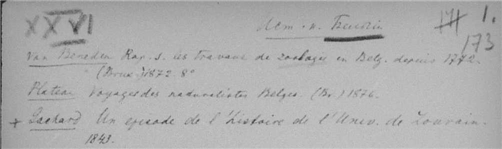 XXVI
1.
173
Van Beneden Rap. s. les travaux de zoologie en Belg. depuis 1772.
(Brux.) 1872. 8°
Plateau Voyages des naturalistes Belges (Br.) 1876.
+ Gachard Un episode de l'histoire de l'Univ. de Louvain.
1843.